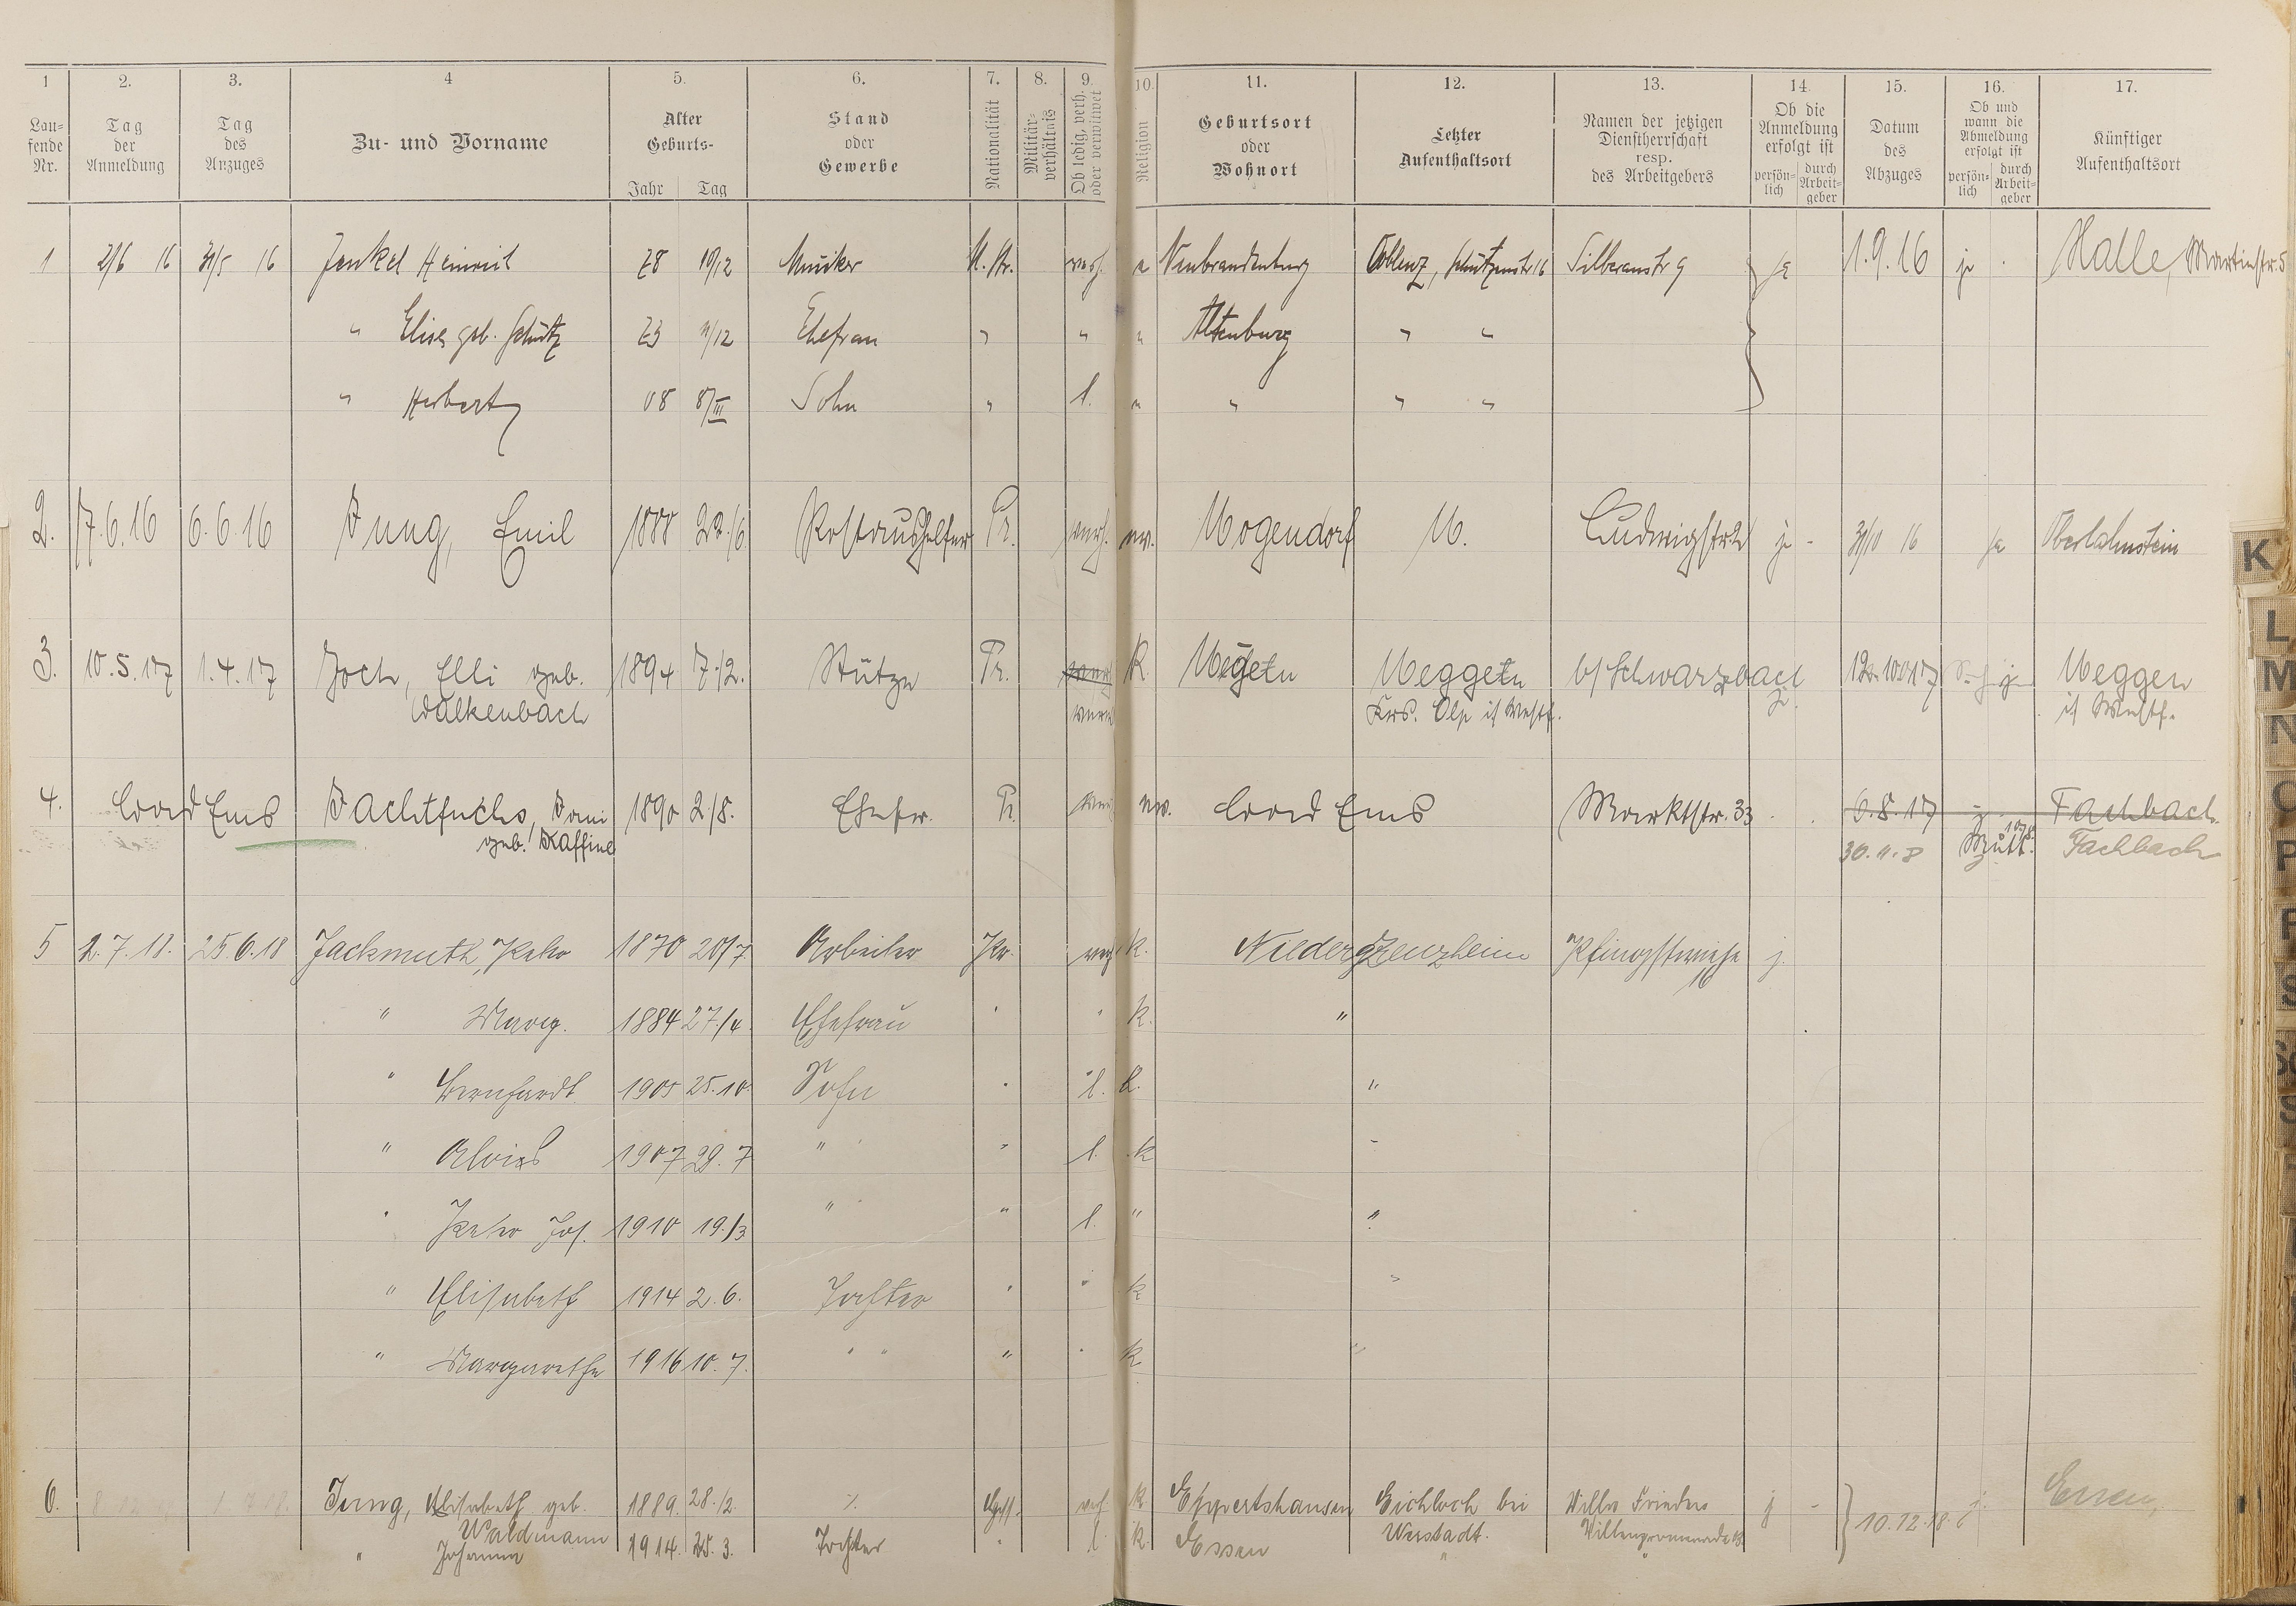 1 2. 3. 4 5. 6. 7. 8. 9. 10. 11. 12. 13. 14. 15. 16. 17.
Lau-
fende
Nr.
Tag
der
Anmeldung
Tag
des
Anzuges
Zu- und Vorname
Alter
Geburts-
Jahr Tag
Stand
oder
Gewerbe
Nationalität
Militär-
verhältnis
Ob ledig, verh.
oder verwitwet
Religion
Geburtsort
oder
Wohnort
Letzter
Aufenthaltsort
Namen der jetzigen
Dienstherrschaft
resp.
des Arbeitgebers
Ob die
Anmeldung
erfolgt ist
persön-
lich
durch
Arbeit-
geber
Datum
des
Abzuges
Ob und
wann die
Abmeldung
erfolgt ist
persön-
lich
durch
Arbeit-
geber
Künftiger
Aufenthaltsort
1 2/6 16 31/5 16 Jenkel Heinrich 78 10/12 Musiker verh. Neubrandenburg Coblenz, Schützenstr 16 Silberaustr 9 ja 1.9.16 ja Halle, Martinstr. 5
" Elise geb. Schütz /12 Ehefrau " " " Altenburg " "
" Herbert 08 8/III Sohn " l. " " " "
2. 7.6.16 6.6.16 Jung, Emil 1888 22./6. Postaushelfer Pr. verh. ev. Mogendorf M. Ludwigstr. j - 31/10 16 ja Oberlahnstein
3. 10.5.17 1.4.17 Joch, Elli geb. 1894 7./2. Stütze Pr. K. Meggen b/ Schwarzbach 17 Meggen
Walkenbach Krs. Olp i/ Westf. j. i/ Westf.
4. Bad Ems Jachtfuchs, 1890 2./8. Ehefr. Pr. ev. Bad Ems Marktstr. 33 6.8.17 Fachbach
geb. 30.11.8 Fachbach
5 2.7.18. 25.6.18 Jackmuth, Peter 1870 20/7 Arbeiter Pr. verh k. Niederzeuzheim Pfingstwiese j.
16
" Marg. 1884 27./4. Ehefrau " " k. "
" Bernhardt 1905 25.10. Sohn " l. k. "
" Alois 1907 29.7 " " l. k "
" Peter Jos. 1910 19./3 " " l. " "
" Elisabeth 1914 2.6. Tochter " " k "
" Margarethe 1916 10.7. " " " k "
6. Jung, Elisabeth geb. 1889. 28./2. % Hess. verh. k Eppertshausen Eichloch bei Villa Frieden j - 10.12.18. j. Essen,
Waldmann Wörstadt. Villenpromenade
" Johanna 1914. 25.3. Tochter " l. k. Essen " "
K
L
M
N
O
P
R
S